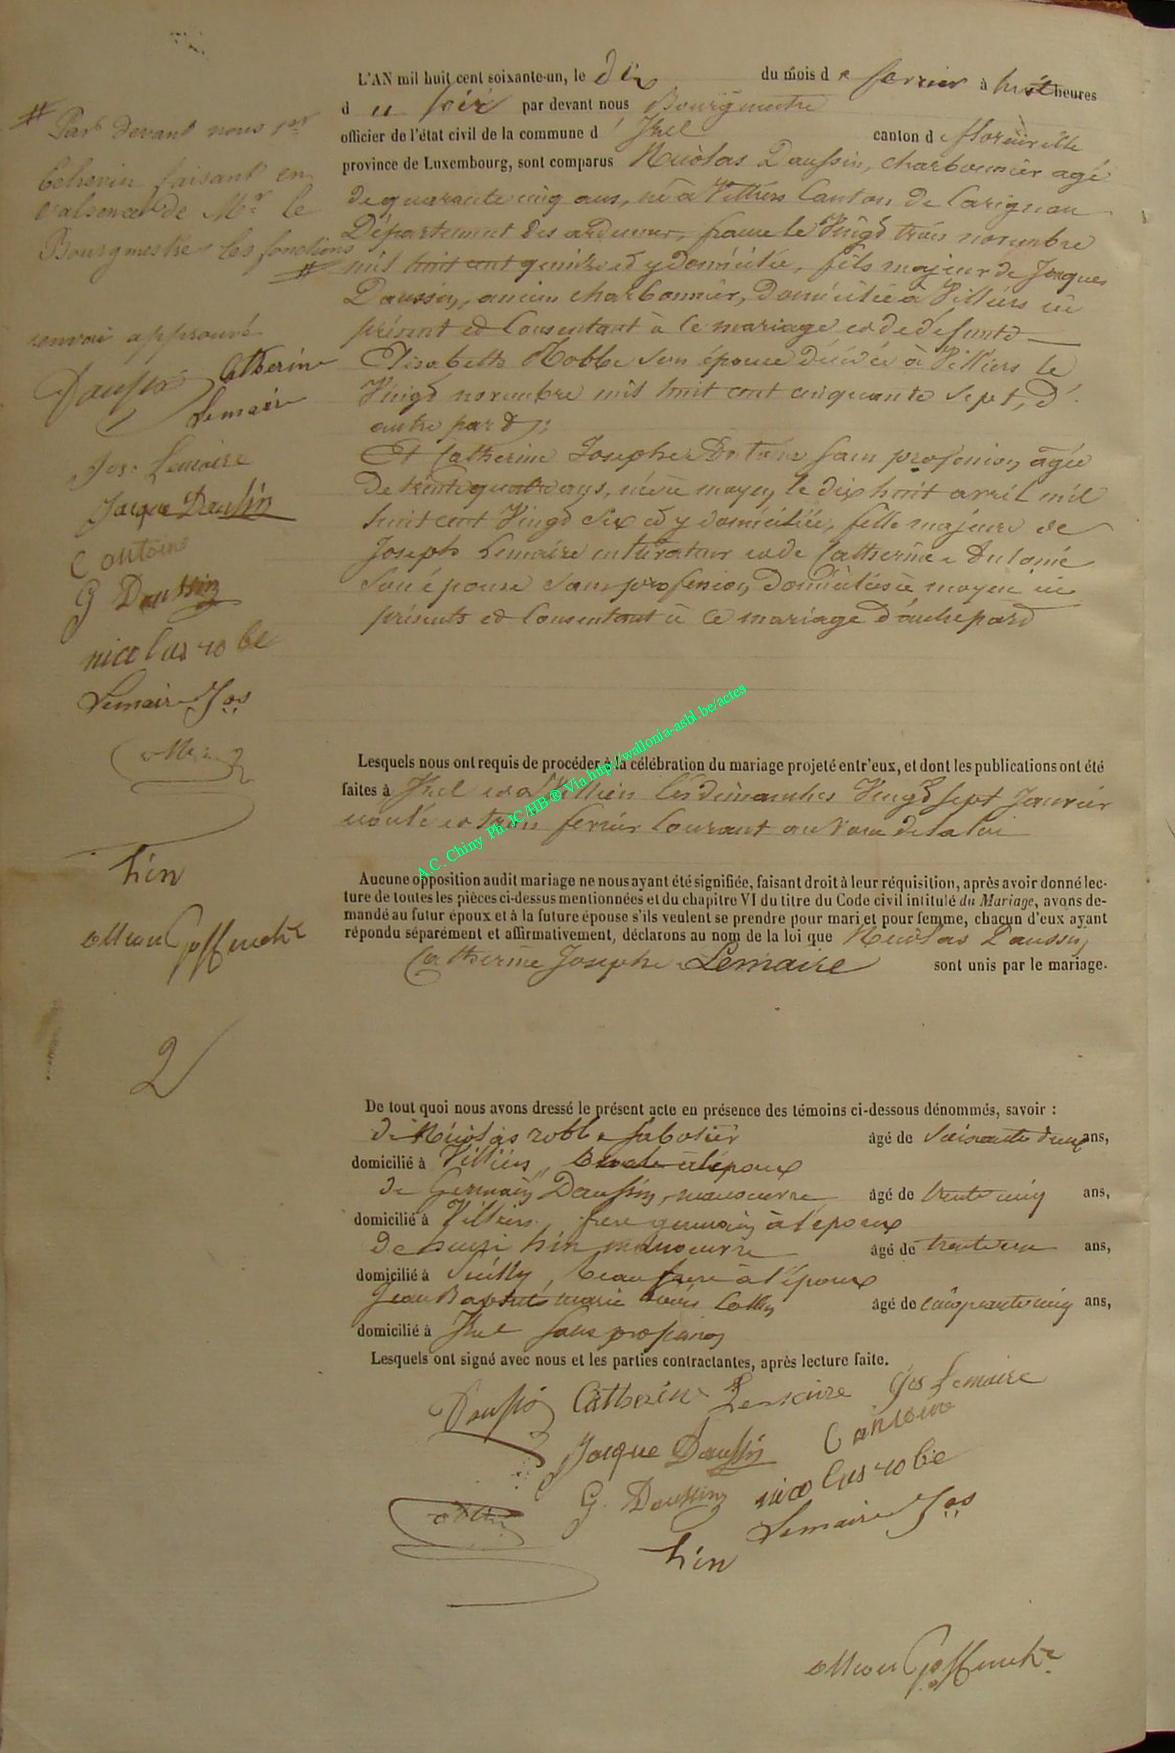 L'AN mil huit cent soixante-un, le dix du mois de fevrier à huit heures
du soir par devant nous Bourgmestre
officier de l'état civil de la commune d' Izel canton de florenville
province de Luxembourg, sont comparus Nicolas Daussin, charbonnier agé
de quarante cinq ans, né à Villiers Canton de Carignan
Département des ardennes, france le Vingt trois novembre
mil huit cent quinze et y domicilié, fils majeur de Jacques
Daussin, ancien charbonnier, domicilié à Villiers ici
présent et Consentant à ce mariage et de défunte
Elisabeth Robbe son épouse décédée à Villiers le
Vingt novembre mil huit cent cinquante sept, d'
autre part;
Et Catherine Josephe Antoine sans profession, agée
de trente quatre ans, née à moyen, le dix huit avril mil
huit cent Vingt six et y domiciliée, fille majeure de
Joseph Lemaire cultivateur et de Catherine Antoine
son épouse sans profession, domiciliés à moyen ici
présents et Consentant à ce mariage d'autre part
# Par devant nous 1er
Echevin faisant en
l'absence de Mr le
Bourgmestre les fonctions
#
renvoi approuvé
Daussin Catherine
Lemaire
Jos. Lemaire
Jacque Dausin
C antoine
G Daussin
nicolas robe
Lemaire Jos
hin
2
Lesquels nous ont requis de procéder à la célébration du mariage projeté entr'eux, et dont les publications ont été
faites à Izel et à Villiers les dimanches Vingt sept Janvier
écoulé et trois fevrier Courant au Vœu de la loi
A.C. Chiny Ph.JC/HB ® Via http://wallonia-asbl.be/actes
Aucune opposition audit mariage ne nous ayant été signifiée, faisant droit à leur réquisition, après avoir donné lec-
ture de toutes les pièces ci-dessus mentionnées et du chapitre VI du titre du Code civil intitulé du Mariage, avons de-
mandé au futur époux et à la future épouse s'ils veulent se prendre pour mari et pour femme, chacun d'eux ayant
répondu séparément et affirmativement, déclarons au nom de la loi que Nicolas Daussin,
Catherine Josephe Lemaire sont unis par le mariage.
De tout quoi nous avons dressé le présent acte en présence des témoins ci-dessous dénommés, savoir :
de Nicolas robbe sabotier âgé de soixante deux ans,
domicilié à Villiers, oncle à l'époux
de Germain Daussin, manoeuvre âgé de trente cinq ans,
domicilié à Villiers, frere germain à l'époux
de henri hin manoeuvre âgé de trente ans,
domicilié à Puilly, beau frere à l'époux
Jean Baptiste marie Collin âgé de cinquante cinq ans,
domicilié à Izel sans profession
Lesquels ont signé avec nous et les parties contractantes, après lecture faite.
Daussin Catherine Lemaire Jos Lemaire
Jacque Daussin C antoine
G. Daussin nicolas robe
Lemaire Jos
hin